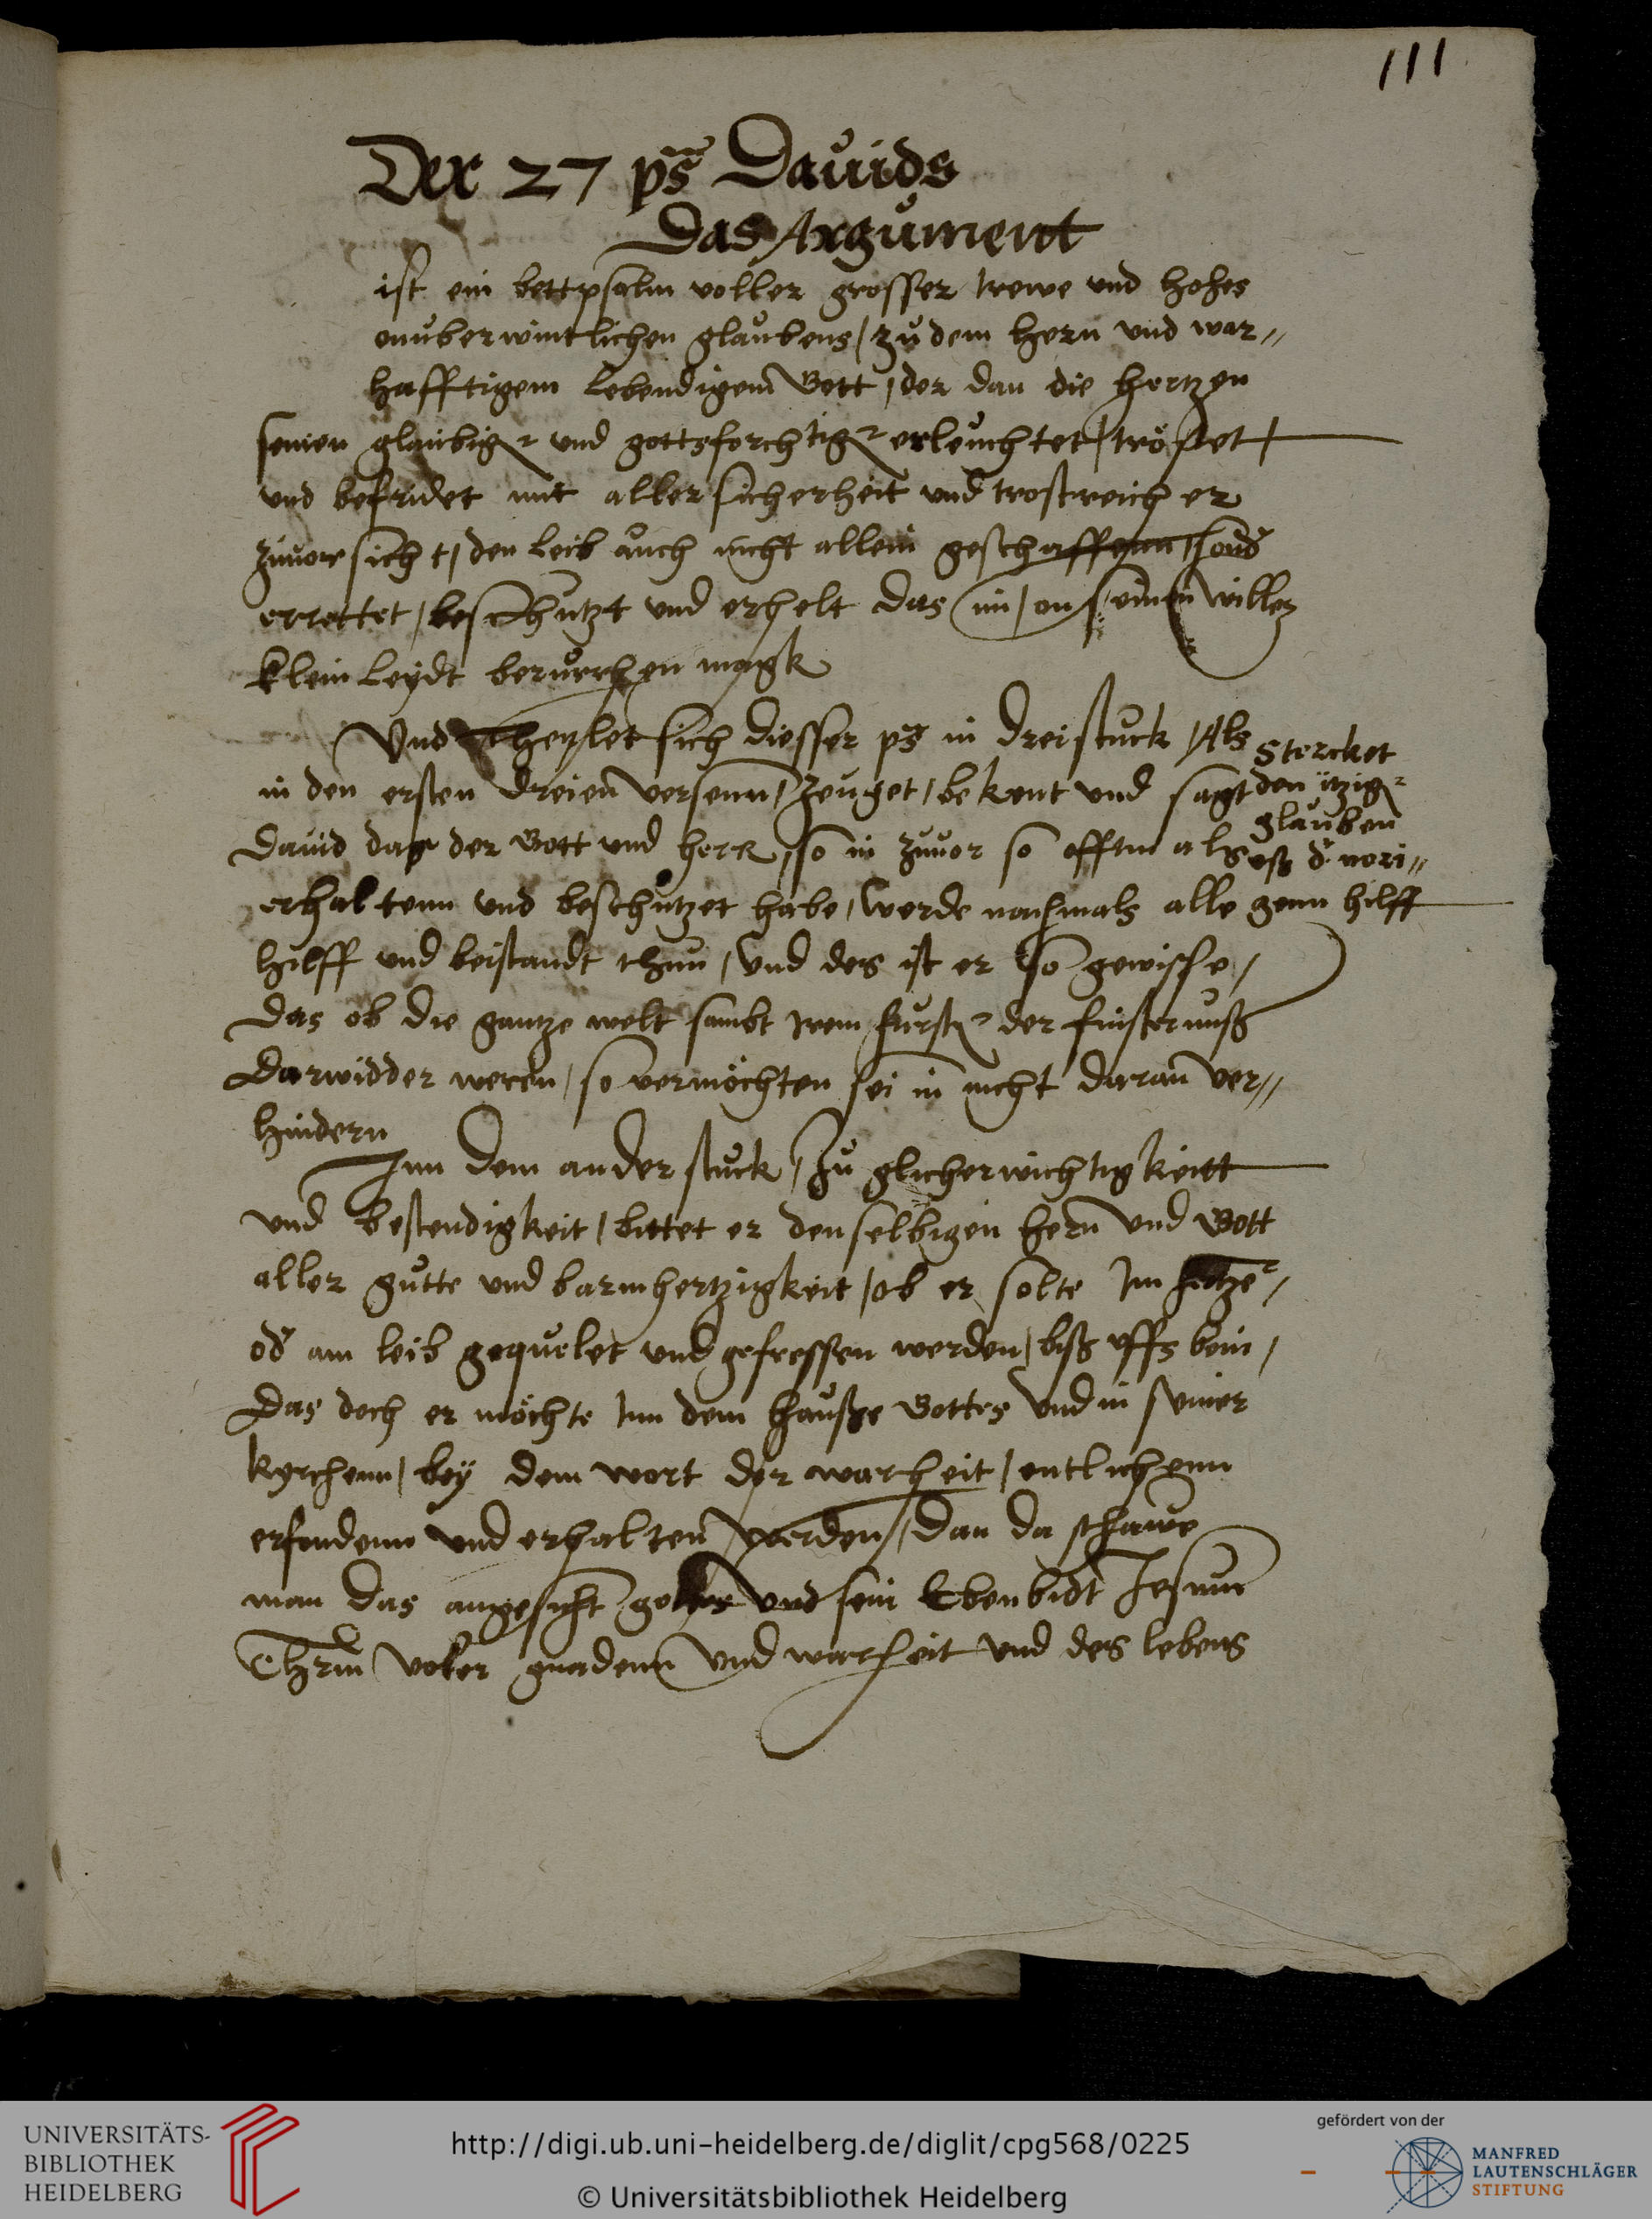 111
Der 27 ps Dauids
Das Argument
ist ein bettpsalm voller grosser trewe und hohes
onuberwintlichen glaubens / zu dem hern und war〃
hafftigem lebendigem Gott / der dan die hertzen
seinen glaubig und gottsforchtig erleuchtet / tröstet /
und befridet mit aller sicherheit und trostreich er
zuuorsicht / den leib auch nicht allein geschaffenn / sond
errettet / beschutzt und erhelt das im / on seinen willen
klein leydt berueren magk
Und theylet sich diesser ps in drei stuck / Als
in den ersten dreien versenn / zeuget / bekent und sagt
Dauid das der Gott und herr / so in zuuor so offtmals
erhaltenn und beschutzet habe / werde nachmals alle
Stercket
den itzig
glauben
auß d vori〃
genn hilff
hilff und beistandt thun / Und des ist er so gewisse /
Das ob die gantze welt sambt irem furst der finsternuß
Darwidder weren / so vermöchten sei in nicht daran ver〃
hindern
Inn dem ander stuck / zu glicherwichtigkeitt
und bestendigkeit / bittet er denselbigen hern und Gott
aller gutte und barmhertzigkeit / ob er solte im hertze /
od am leib gequelet und gefressen werden / biß uffs bein /
Das doch er möchte inn dem hauße Gottes und in seiner
kyrchenn / bey dem wort der warheit / entlichenn
erfondenn und erhalten werden / Dan da schawe
man das angesicht gottes und sein Ebenbidt Jesum
Chrm voller gnadenn und warheit und des lebens
UNIVERSITÄTS-
BIBLIOTHEK
HEIDELBERG
http://digi.ub.uni-heidelberg.de/diglit/cpg568/0225
© Universitätsbibliothek Heidelberg
gefördert von der
MANFRED
LAUTENSCHLÄGER
STIFTUNG